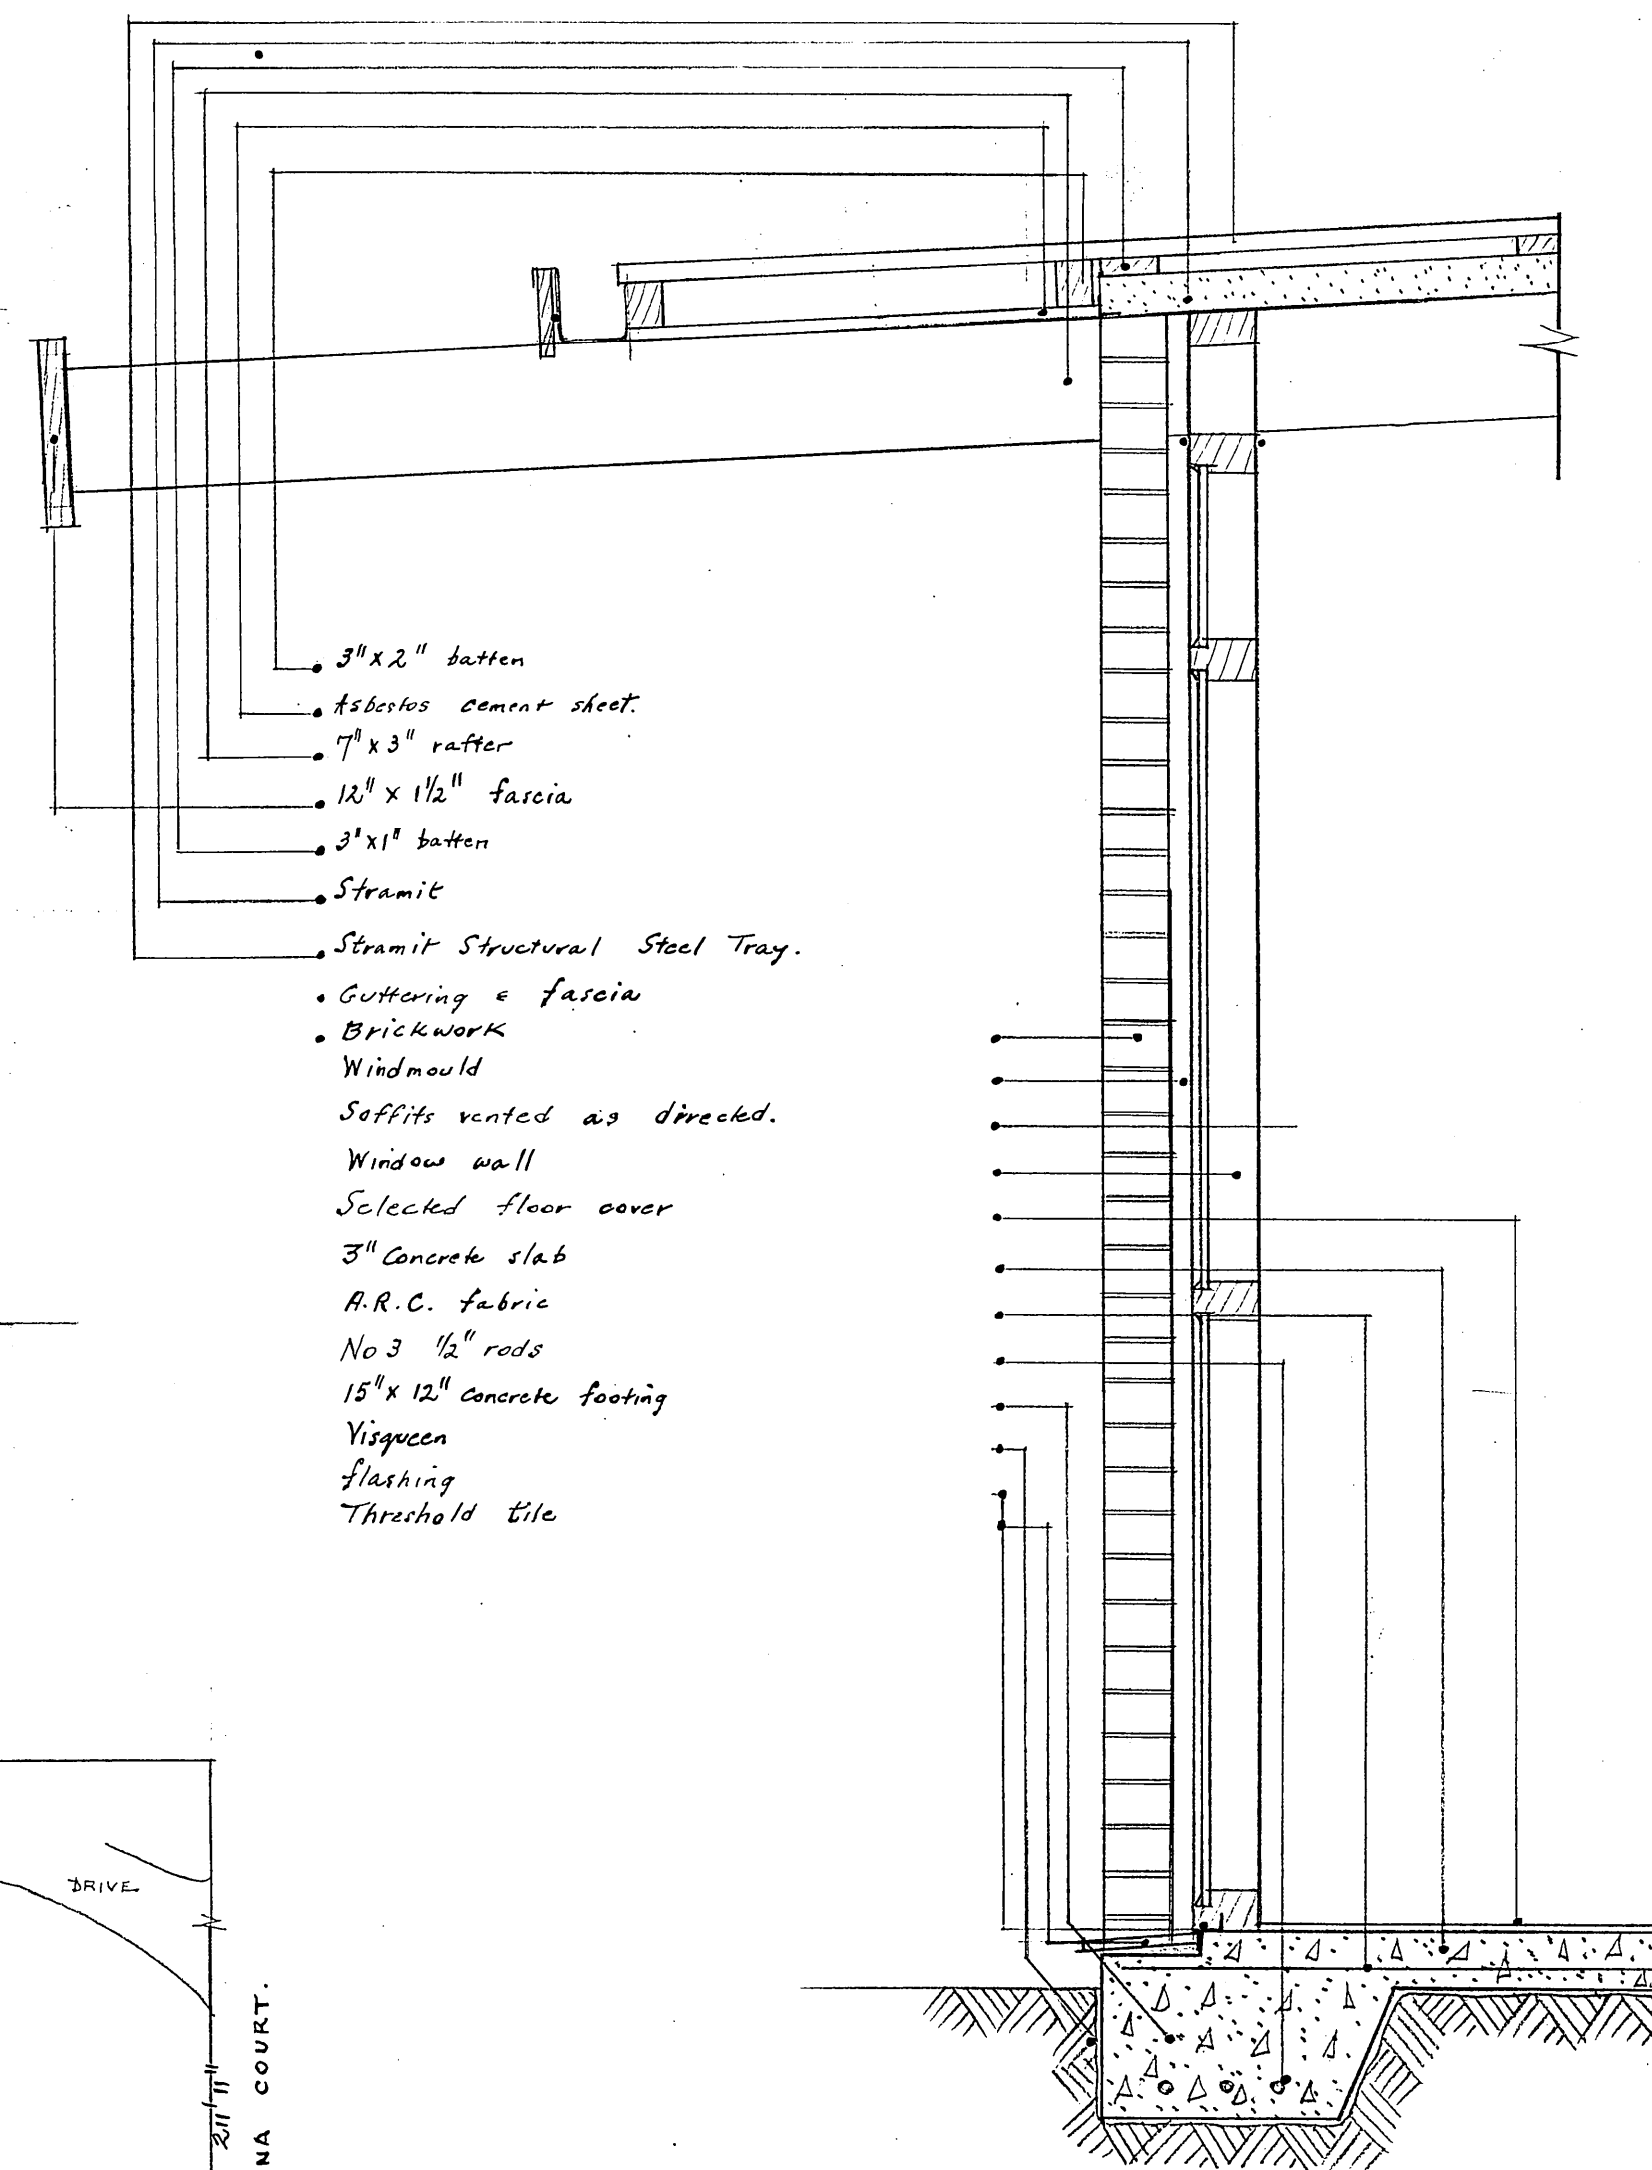 3" x 2" batten
Asbestos cement sheet.
7" x 3" rafter
12" x 1 1/2" fascia
3" x 1" batten
Stramit
Stramit Structural Steel Tray.
Guttering & fascia
Brickwork
Windmould
Soffits vented as directed.
Window wall
Selected floor cover
3" Concrete slab
A.R.C. fabric
No 3 1/2" rods
15" x 12" concrete footing
Visqueen
flashing
Threshold tile
DRIVE
NA COURT.